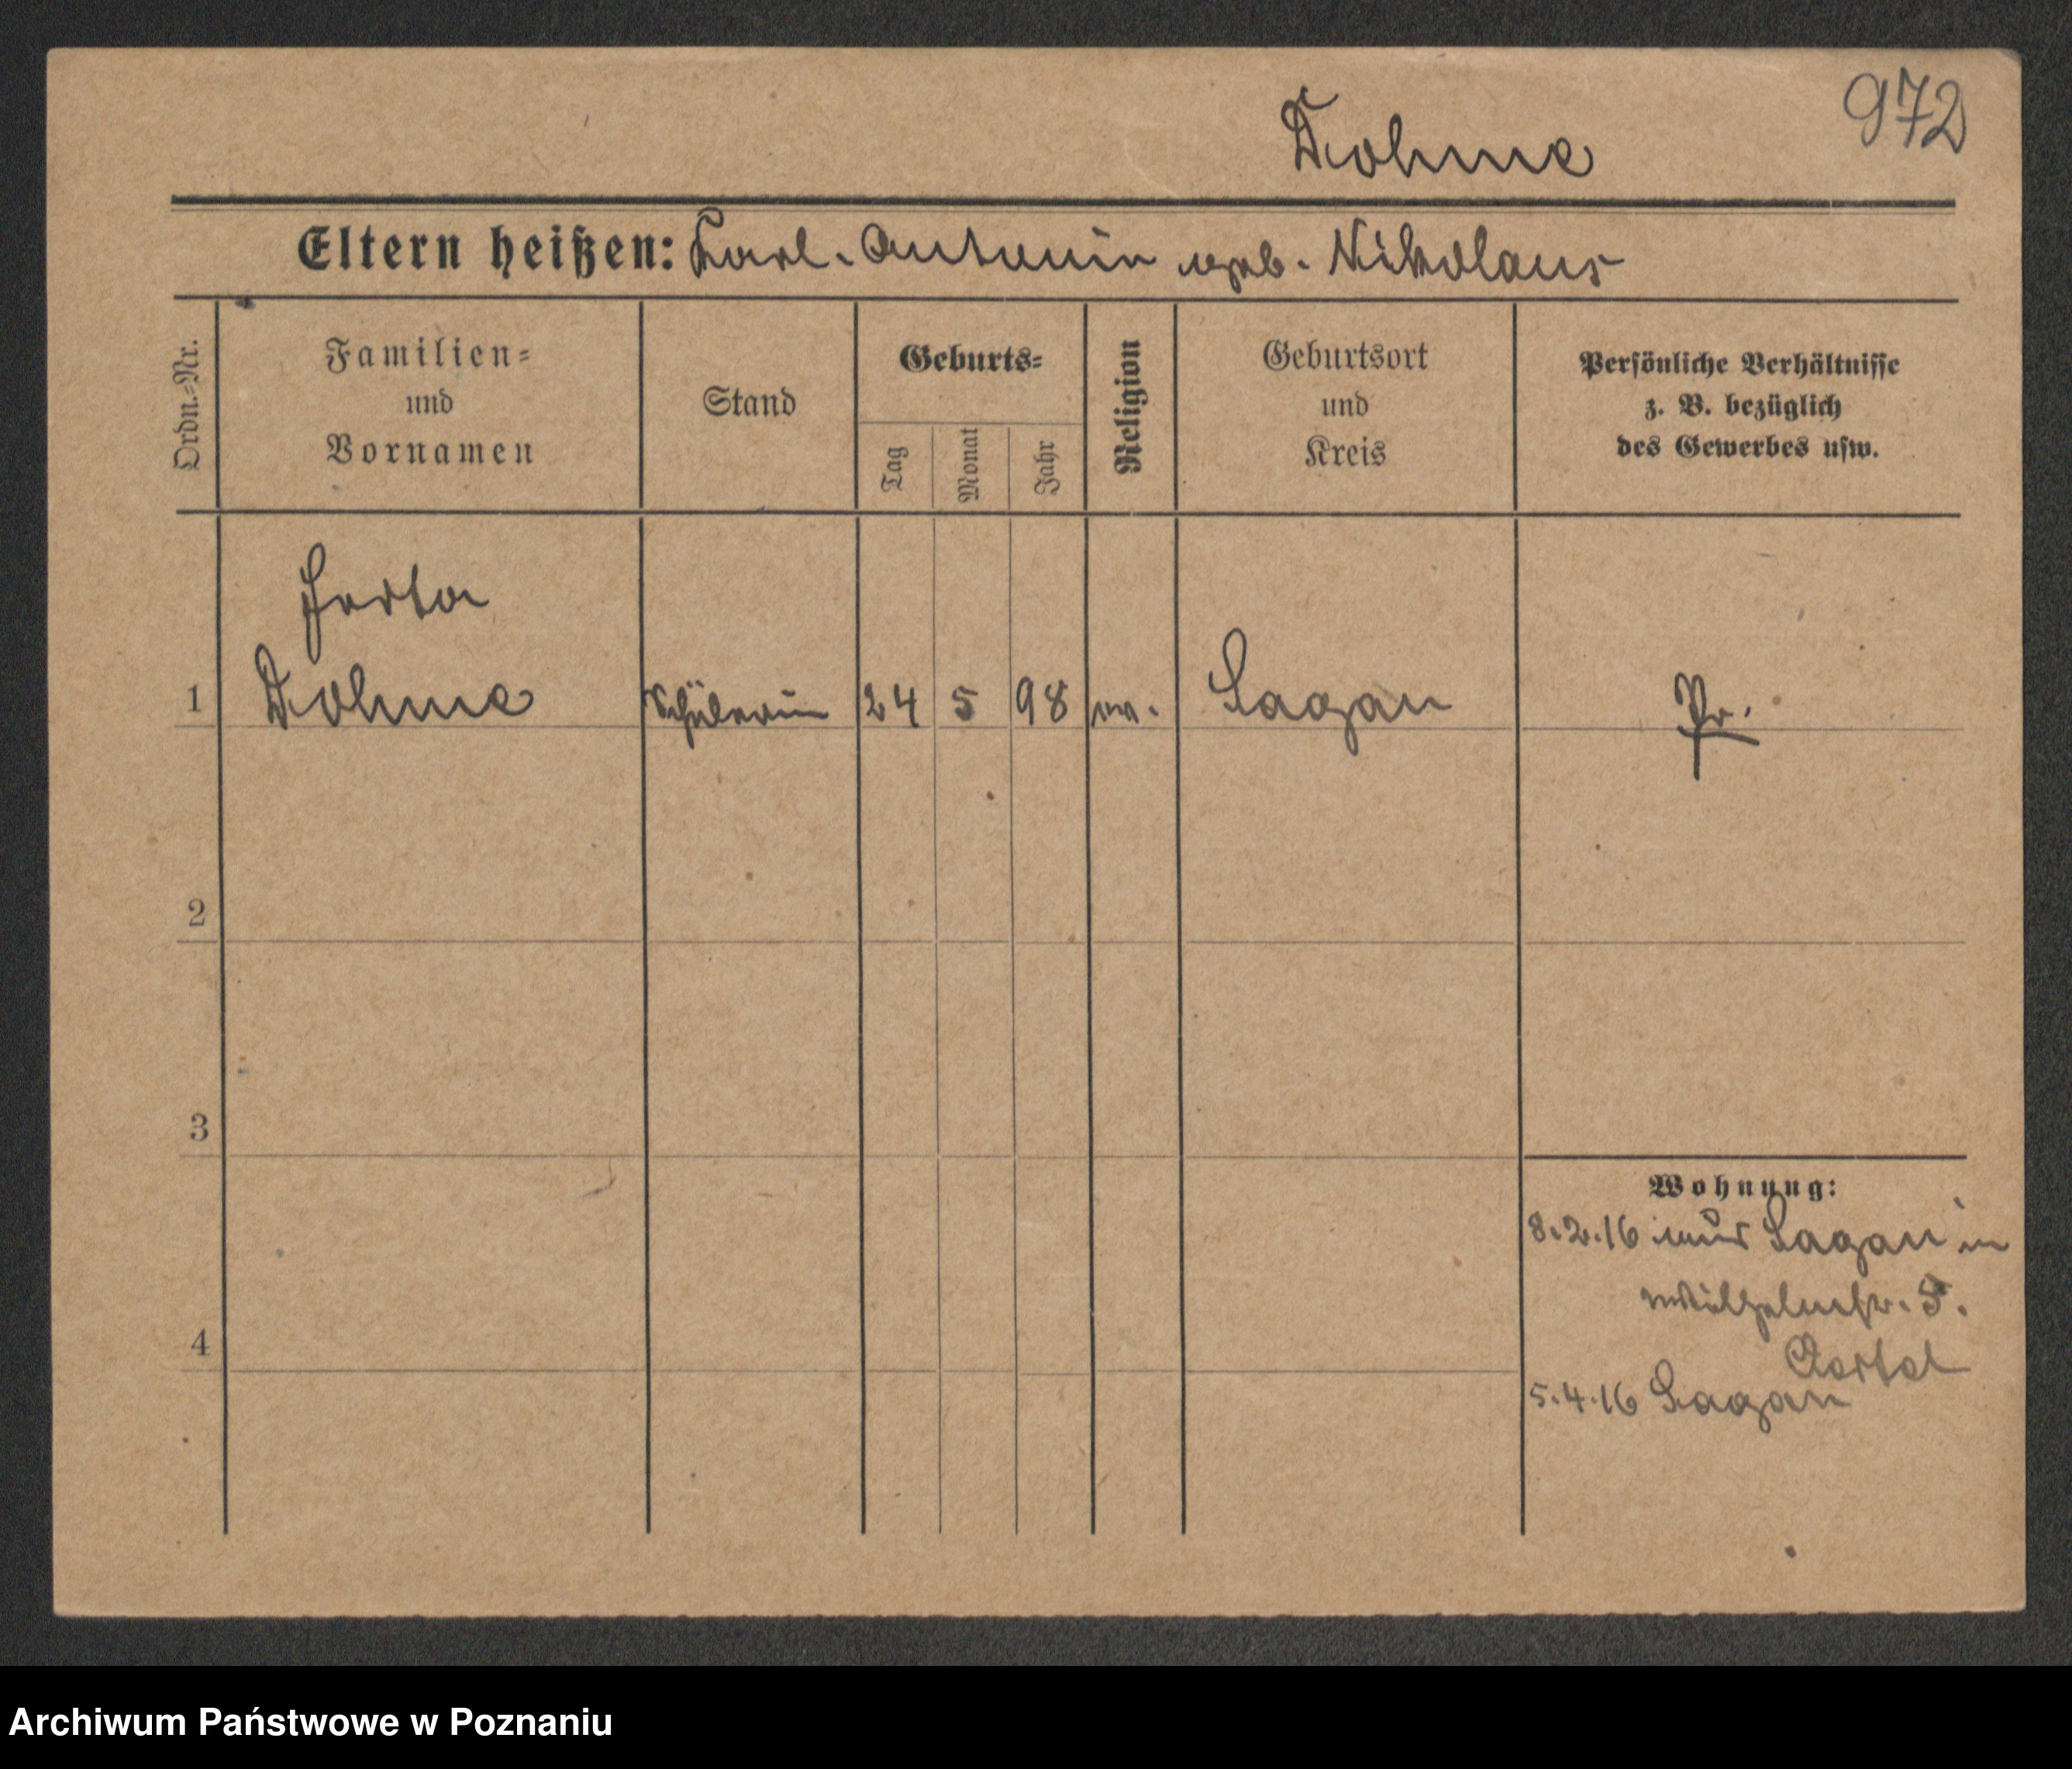 972
Dohme
Eltern heißen: Karl. Antonie geb. Nikolaus
Ordn.-Nr.
Familien-
und
Vornamen
Stand
Geburts-
Tag
Monat
Jahr
Religion
Geburtsort
und
Kreis
Persönliche Verhältnisse
z. B. bezüglich
des Gewerbes usw.
Herta
1 Dohme Schülerin 24 5 98 ev. Sagan Pr.
2
3
Wohnung:
8.2.16 aus Sagan in
Wilhelmstr. 5.
4
Oertel
5.4.16 Sagan
Archiwum Państwowe w Poznaniu